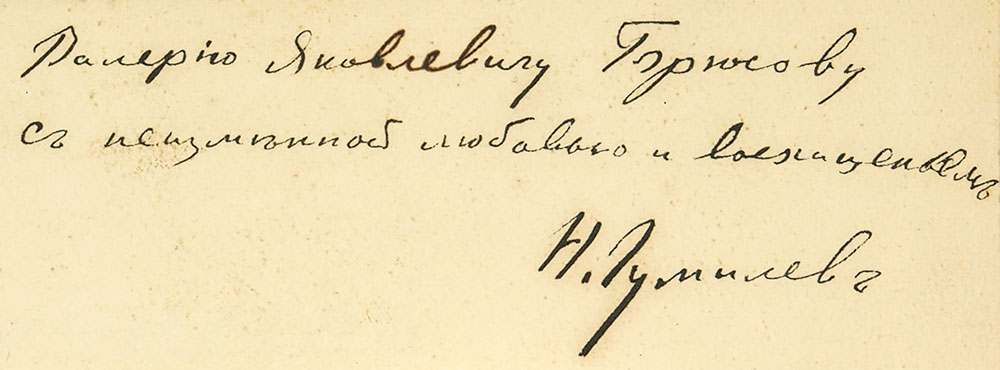 Валерію Яковлевичу Брюсову
съ неизмѣнной любовью и восхищеньемъ
Н. Гумилевъ